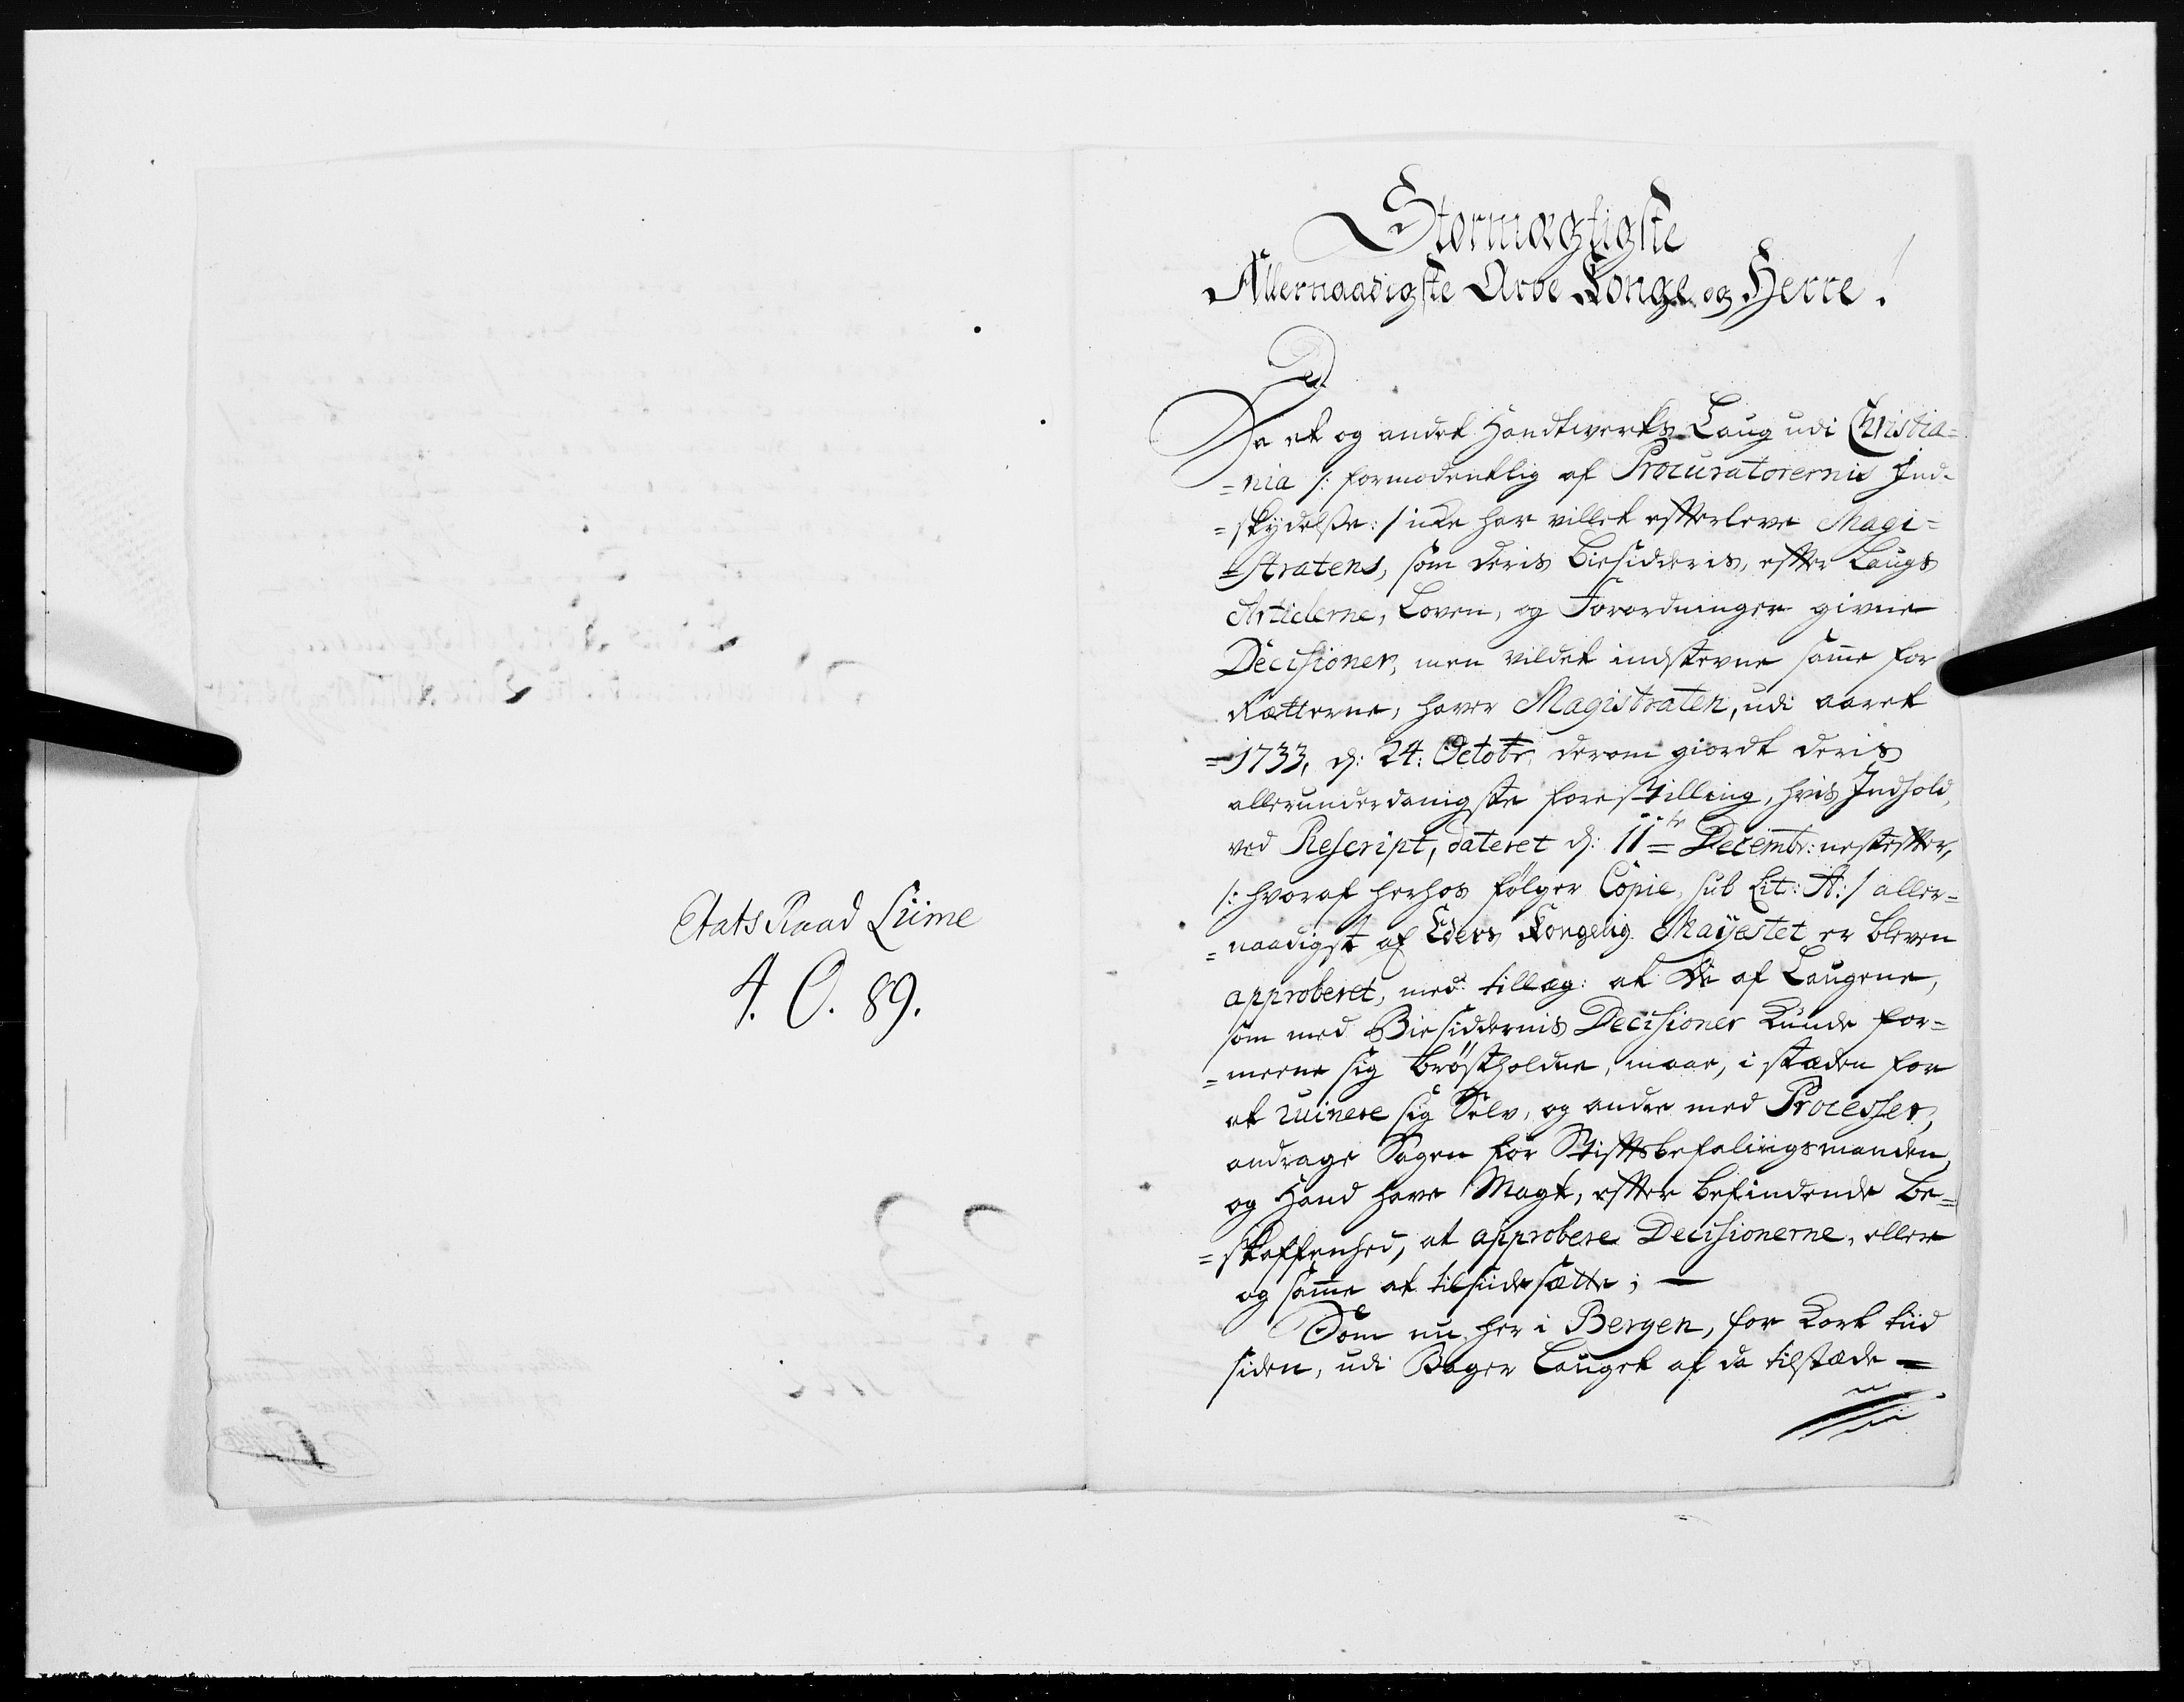 Etats Raad Lüme
4. O. 89.
Stormægtigste
Allernaadigste Arve Konge og Herre!
Da et og andet Handtwerks Laug udi Christia=
=nia /: formodentlig af Procuratorernis Ind-
=skydelse :/ icke har villet efterleve Magi=
=stratens, som deris Biesidderis, efter Laugs
Articlerne, Loven, og Forordninger givne
Decisioner, men vildet indstevne same for
Rætterne, haver Magistraten, udi aaret
=1733, d: 24: Octobr. derom giordt deris
allerunderdanigste forestilling, hvis Indhold,
ved Rescript, dateret d: 11te Decembr: nestefter,
/: hvoraf herhos følger Copie, sub Lit: A :/ aller=
=naadigst af Eders Kongelig Mayestet er bleven
approberet, med tillæg: at De af Laugene,
som med Biesiddernis Decisioner Kunde for=
=meene sig brøstholdne, maae, i stæden for
at ruinere sig Selv, og andre med Processer,
andrage Sagen for Stiftsbefalingsmanden,
og Hand have Magt, efter befindende be=
=skaffenhed, at approbere Decisionerne, eller
og same at tilsiide sætte; —
Som nu her i Bergen, for Kort tiid
siden, udi Bager Lauget af da tilstæde =